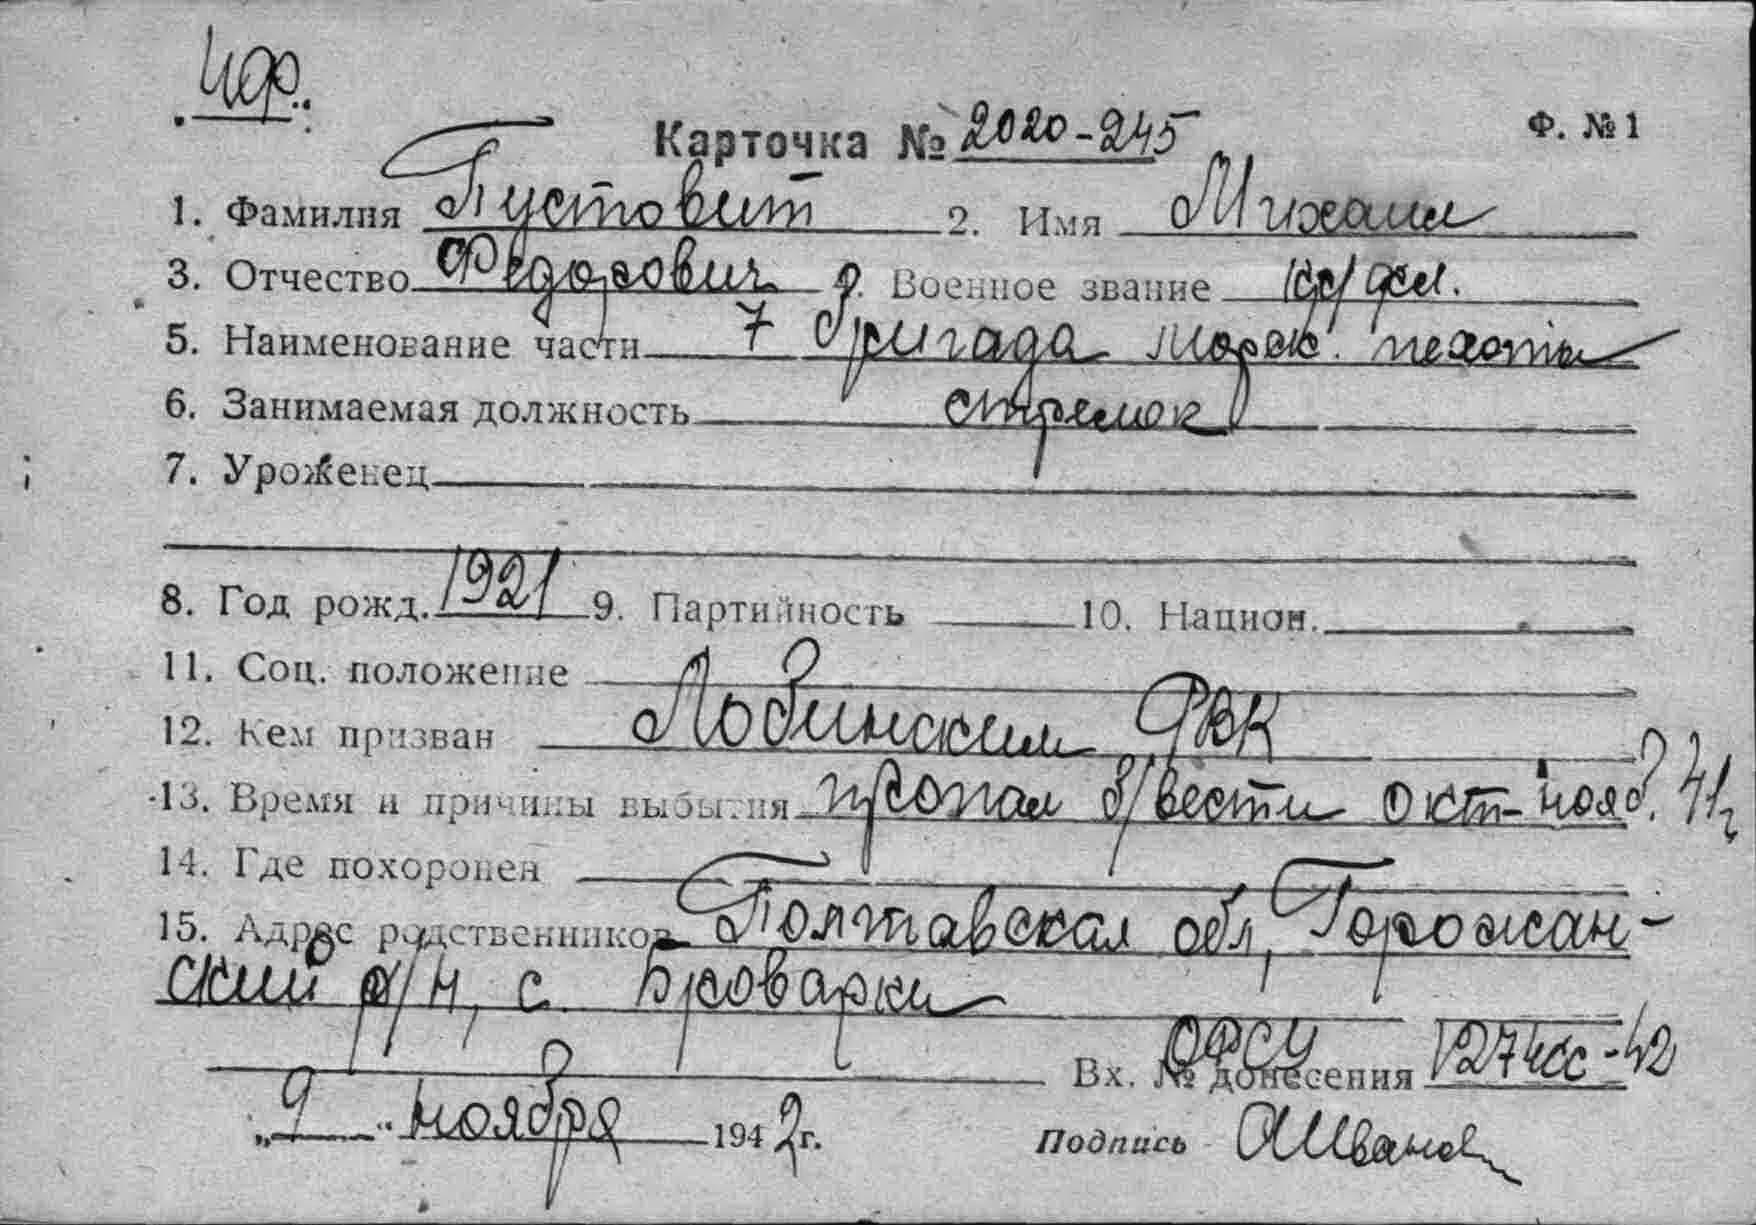 ЧФ.
Карточка № 2020-245
Ф. № 1
1. Фамилия Пустовит 2. Имя Михаил
3. Отчество Федорович Военное звание кр/фл.
5. Наименование части 7 бригада морск. пехоты
6. Занимаемая должность стрелок
7. Уроженец
8. Год рожд. 1921 9. Партийность 10. Национ.
11. Соц. положение
12. Кем призван Лобинским РВК
13. Время и причины выбытия пропал б/вести окт-нояб. 41г
14. Где похоронен
15. Адрес родственников Полтавская обл, Горожан-
ский р/н, с. Броварки
ОФСУ
Вх. № донесения 1274сс-42
„9" ноября 1942г.
Подпись АИванов